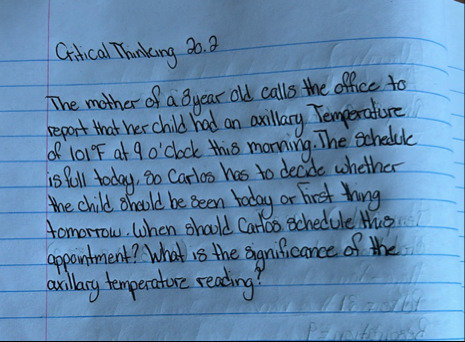 Critical Thinking 20.2
The mother of a 8 year old calls the office to
report that her child had an axillary Temperature
of 101°F at 9 o'clock this morning. The schedule
is full today, so Carlos has to decide whether
the child should be seen today or first thing
tomorrow. When should Carlos schedule this
appointment? What is the significance of the
axillary temperature reading?